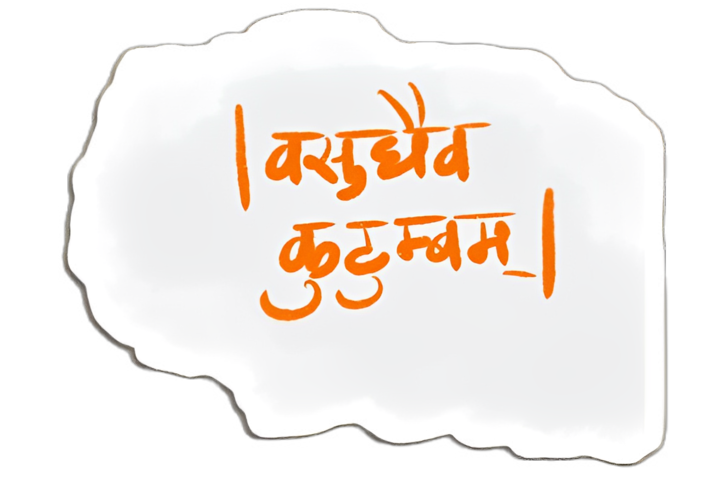 |वसुधैव
कुटुम्बम्|